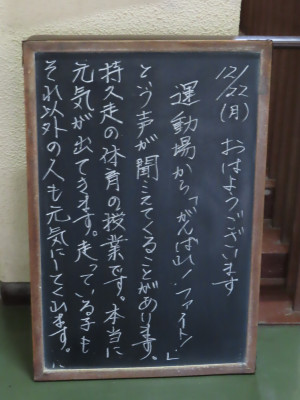 12/22(月) おはようございます
運動場から「がんばれ!ファイト!」
という声が聞こえてくることがあります。
持久走の体育の授業です。本当に
元気が出てきます。走っている子も
それ以外の人も元気にしてくれます。